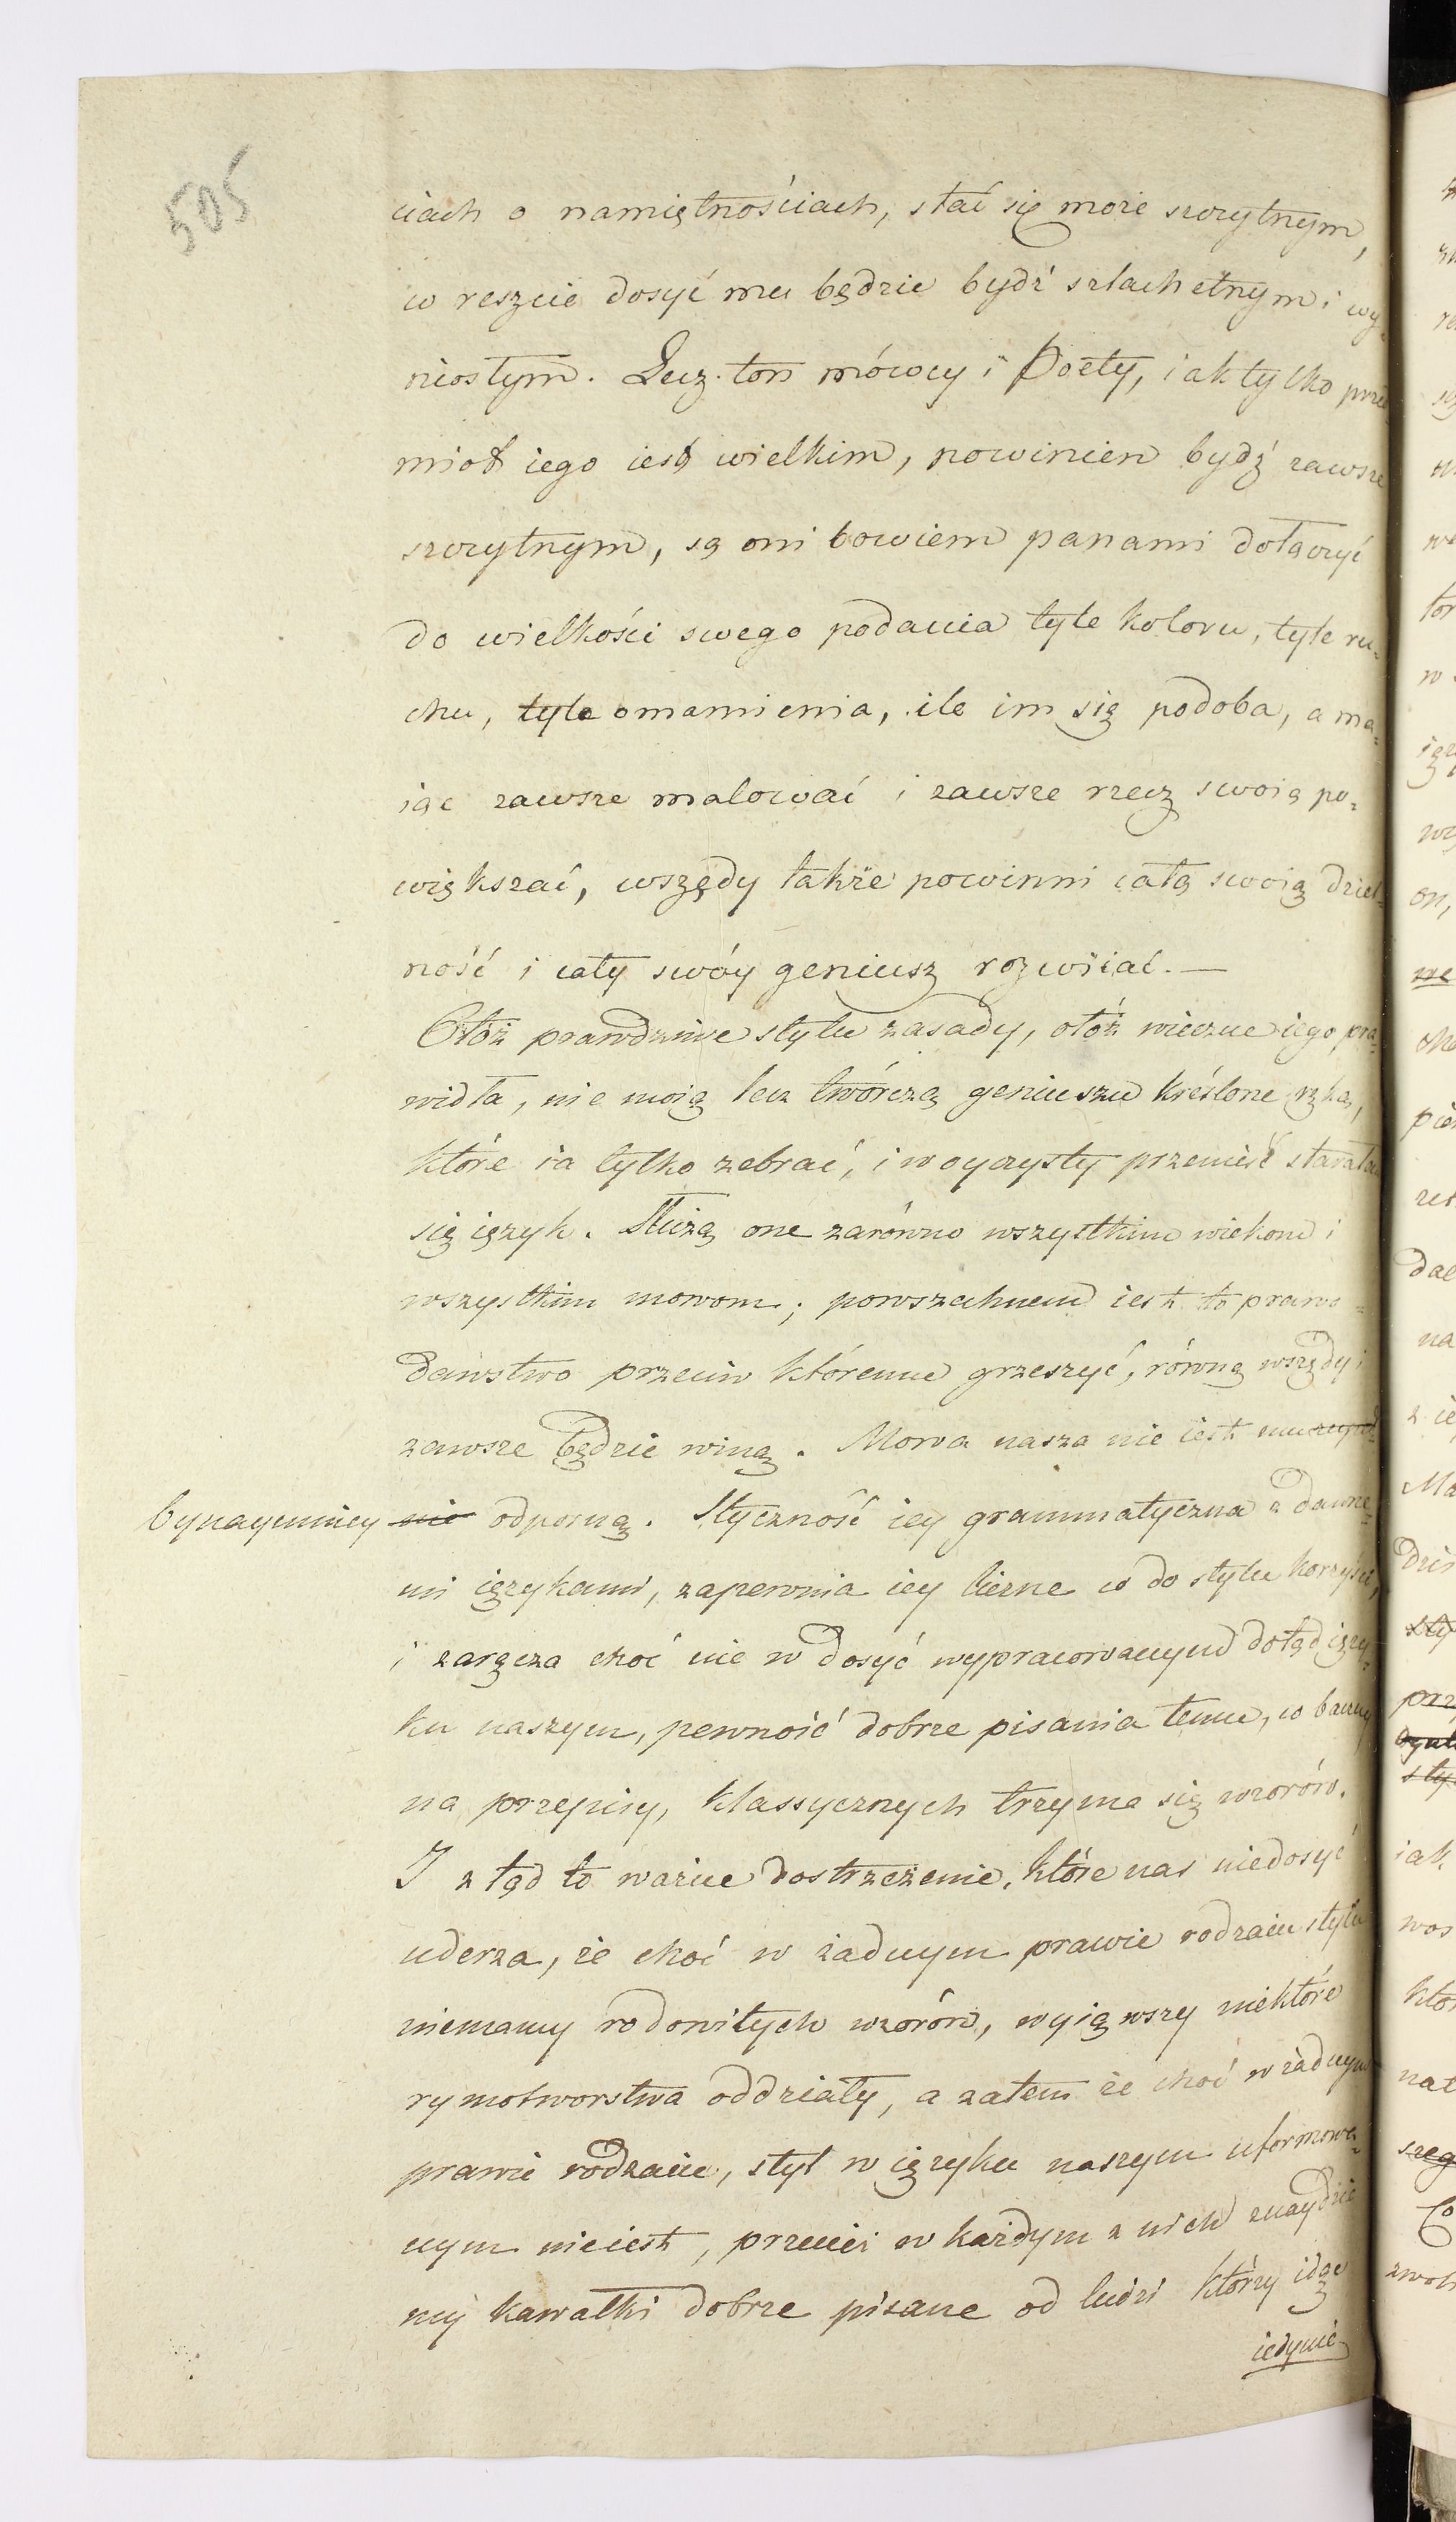 505
ciach o namiętnościach, stać się może szczytnym,
w reszcie dosyć mu będzie bydź szlachetnym i wy-
niosłym. Lecz ton mówcy i Poety, iak tylko przed
miot iego iest wielkim, powinien bydź zawsze
szczytnym, są oni bowiem panami dołączyć
do wielkości swego podania tyle koloru, tyle ru-
chu, tyle omamienia, ile im się podoba, a ma-
iąc zawsze malować i zawsze rzecz swoią po-
większać, wszędy także powinni całą swoią dziel-
ność i cały swóy geniusz rozwiiać. —
Otóż prawdziwe stylu zasady, otóż wieczne iego pra-
widła, nie moią lecz twórczą geniuszu kreślone ręką,
które ia tylko zebrać, i w oyczysty przenieść starała
się ięzyk. Służą one zarówno wszystkim wiekom i
wszystkim mowom; powszechnem iest to prawo-
dawstwo przeciw któremu grzeszyć, równą wszędy i
zawsze będzie winą. Mowa nasza nie iest mu
bynaymniey nie odporną. Styczność iey grammatyczna z dawne-
mi ięzykami, zapewnia iey liczne co do stylu korzyści,
i zaręcza choć nie w dosyć wypracowanym dotąd ięzy-
ku naszym, pewność dobrze pisania temu, co baczny
na przepisy, klassycznych trzyma się wzorów.
I z tąd to ważne dostrzeżenie, które nas niedosyć
uderza, że choć w żadnym prawie rodzaiu stylu
niemamy rodowitych wzorów, wyiąwszy niektóre
rymotworstwa oddziały, a zatem że choć w żadnym
prawie rodzaiu, styl w ięzyku naszym uformowa-
nym nieiest, przecież w każdym z nich znaydzie
my kawałki dobrze pisane od ludzi którzy idąc
iedynie